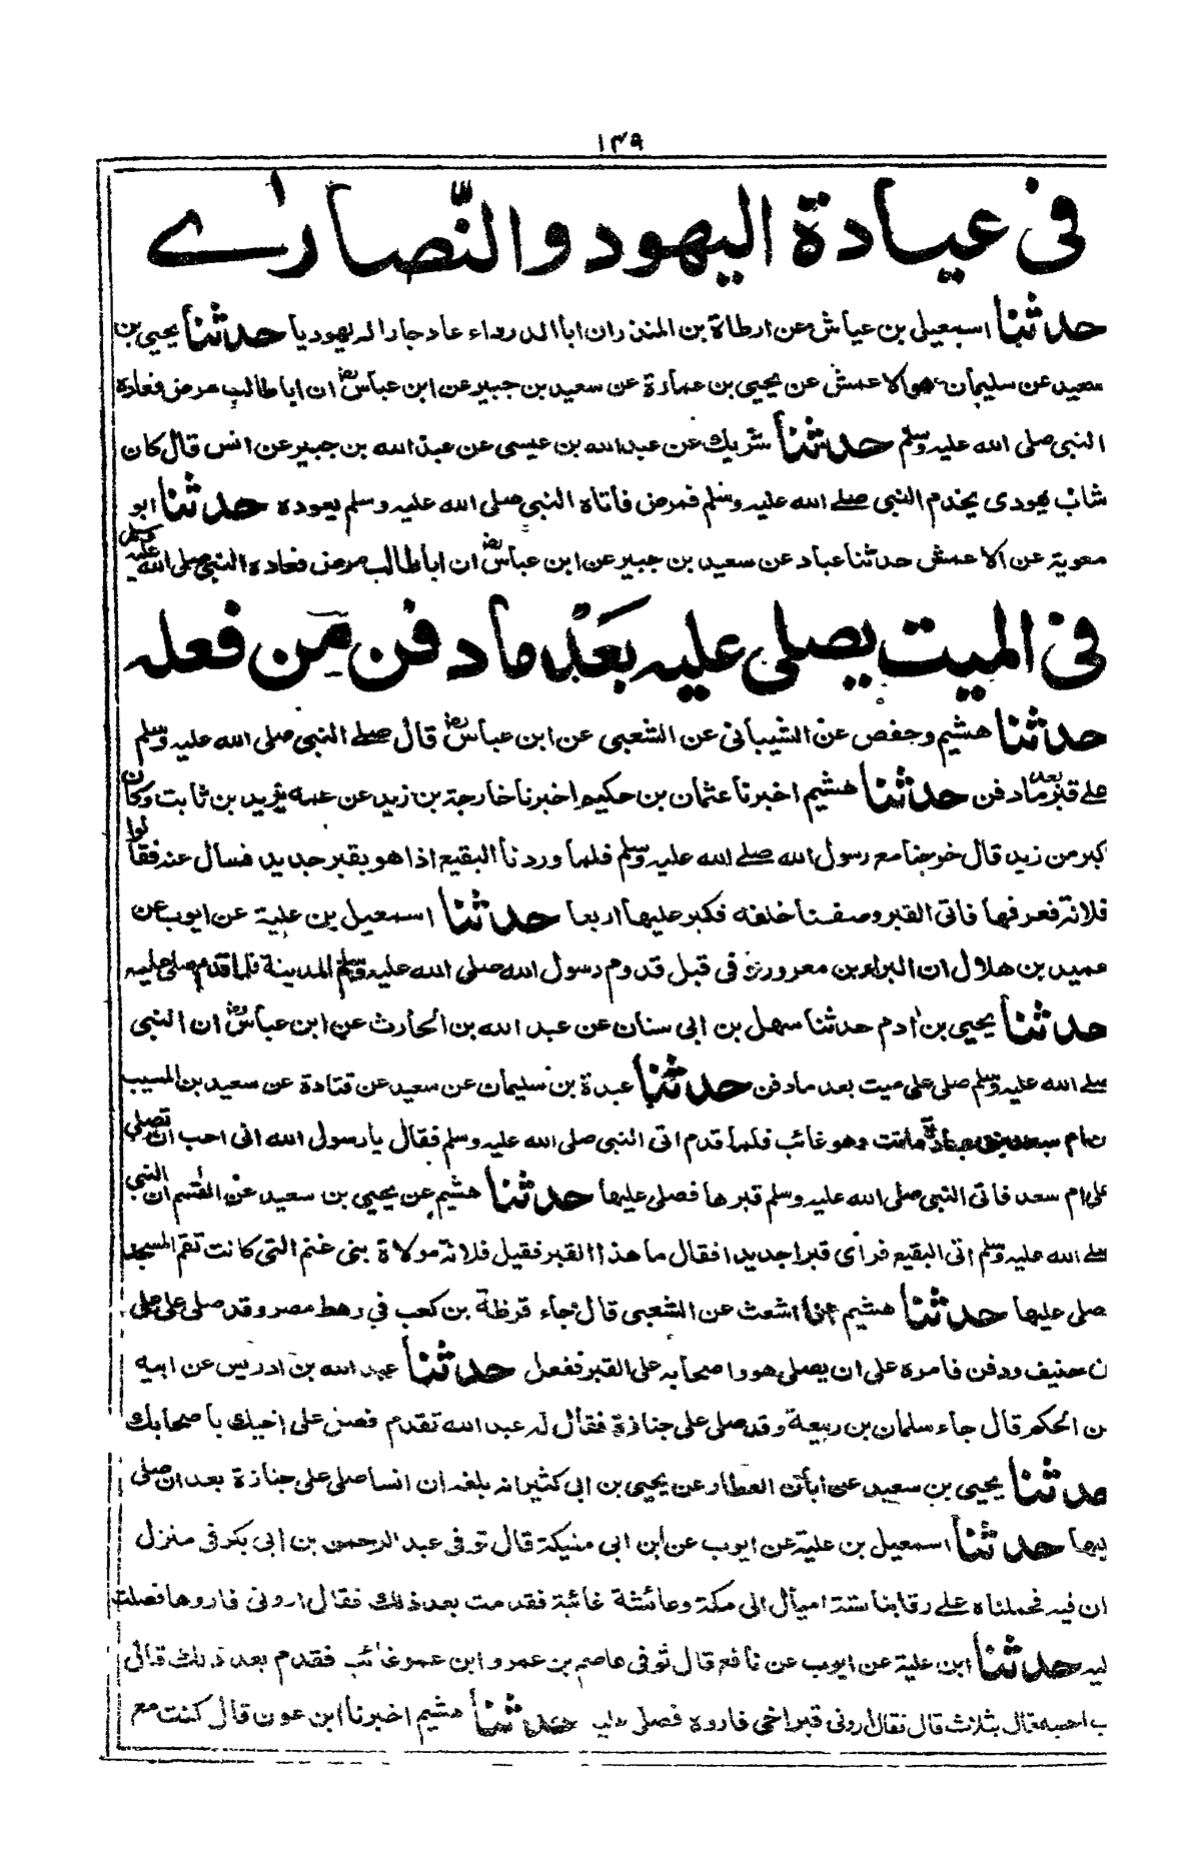 ١٤٩
فى عيادة اليهود والنّصارٰے
حدثنا اسمعيل بن عياش عن ارطاة بن المنذر ان ابا الدرداء عاد جارا له يهوديا حدثنا يحيى بن
سعيد عن سليمان عن يحيى بن عمارة عن سعيد بن جبير عن ابن عباسؓ ان اباطالب مرض فعاده
النبى صلى الله عليه وسلم حدثنا شريك عن عبدالله بن عيسى عن عبد الله بن جبير عن انس قال كان
شاب يهودى يخدم النبى صلے الله عليه وسلم فمرض فأتاه النبى صلى الله عليه وسلم يعوده حدثنا ابو
معوية عن الاعمش حدثنا عباد عن سعيد بن جبير عن ابن عباسؓ ان اباطالب مرض فعاده النبى صلى الله عليه وسلم
فى الميت يصلى عليه بَعْد ما دفن مَن فعله
حدثنا هشيم وحفص عن الشيبانى عن الشعبى عن ابن عباسؓ قال صلے النبى صلى الله عليه وسلم
على قبر بعد مادفن حدثنا هشيم اخبرنا عثمان بن حكيم اخبرنا خارجة بن زيد عن عمه يزيد بن ثابت وكان
كبر من زيد قال خرجنا مع رسول الله صلے الله عليه وسلم فلما وردنا البقيع اذا هو بقبر جديد فسال عنه فقالوا
فلانة فعرفها فاتى القبر وصففنا خلفه فكبر عليها اربعا حدثنا اسمعيل بن علية عن ايوب عن
حميد بن هلال ان البراء بن معرور توفى قبل قدوم رسول الله صلى الله عليه وسلم المدينة فلما قدم صلى عليه
حدثنا يحيى بن ادم حدثنا سهل بن ابى سنان عن عبد الله بن الحارث عن ابن عباسؓ ان النبى
صلے الله عليه وسلم صلى على ميت بعد مادفن حدثنا عبدة بن سليمان عن سعيد عن قتادة عن سعيد بن المسيب
ن ام سعد بن عبادة ماتت وهو غائب فلما قدم اتى النبى صلى الله عليه وسلم فقال يا رسول الله انى احب ان تصلى
على ام سعد فاتى النبى صلى الله عليه وسلم قبرها فصلى عليها حدثنا هشيم عن يحيى بن سعيد عن القاسم ان النبى
صلے الله عليه وسلم اتى البقيع فرأى قبرا جديدا فقال ما هذا القبر فقيل فلانة مولاة بنى غنم التى كانت تقم المسجد
صلى عليها حدثنا هشيم اشعث عن الشعبى قال جاء قرظة بن كعب في رهط معه وقد صلى على
ن حنيف ودفن فامره على ان يصلى هو واصحابه على القبر ففعل حدثنا عبد الله بن ادريس عن ابيه
ن الحكم قال جاء سلمان بن ربيعة وقد صلى على جنازة فقال له عبد الله تقدم فصل على اخيك بأصحابك
حدثنا يحيى بن سعيد عن أبان العطار عن يحيى بن ابى كثير انه بلغه ان انسا صلى على جنازة بعد ان صلى
ليها حدثنا اسمعيل بن علية عن ايوب عن ابن ابى مليكة قال توفى عبد الرحمن بن ابى بكر فى منزل
ان فيه فحملناه على رقابنا ستة اميال الى مكة وعائشة غائبة فقدمت بعد ذلك فقال ارونى فاروها فصلت
ليه حدثنا ابن علية عن ايوب عن نافع قال توفى عاصم بن عمر وابن عمر غائب فقدم بعد ذلك قال
ب احسبه قال بثلاث قال فقال ارونى قبر اخى فاروه فصلى عليه حدثنا هشيم اخبرنا ابن عون قال كنت مع